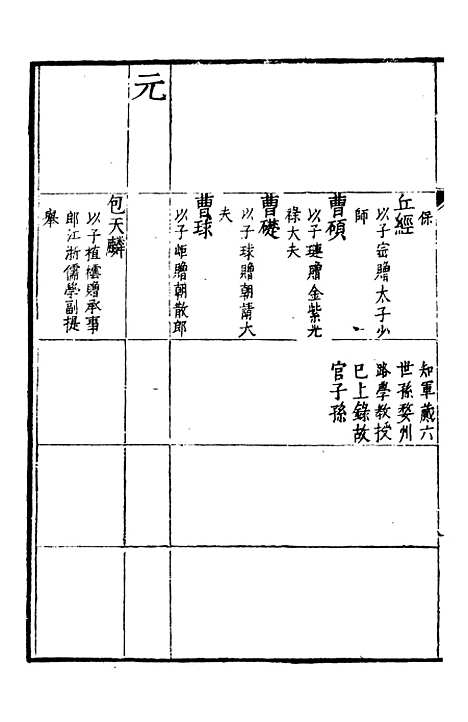 保
丘經
以子宻贈太子少
師
曹碩
以子璉贈金紫光
祿大夫
曹礎
以子球贈朝請大
夫
曹球
以子岠贈朝散郎
知軍蕆六
世孫婺州
路學教授
已上錄故
官子孫
元
包天麟
以子植贈承事
郎江浙儒學副提
舉